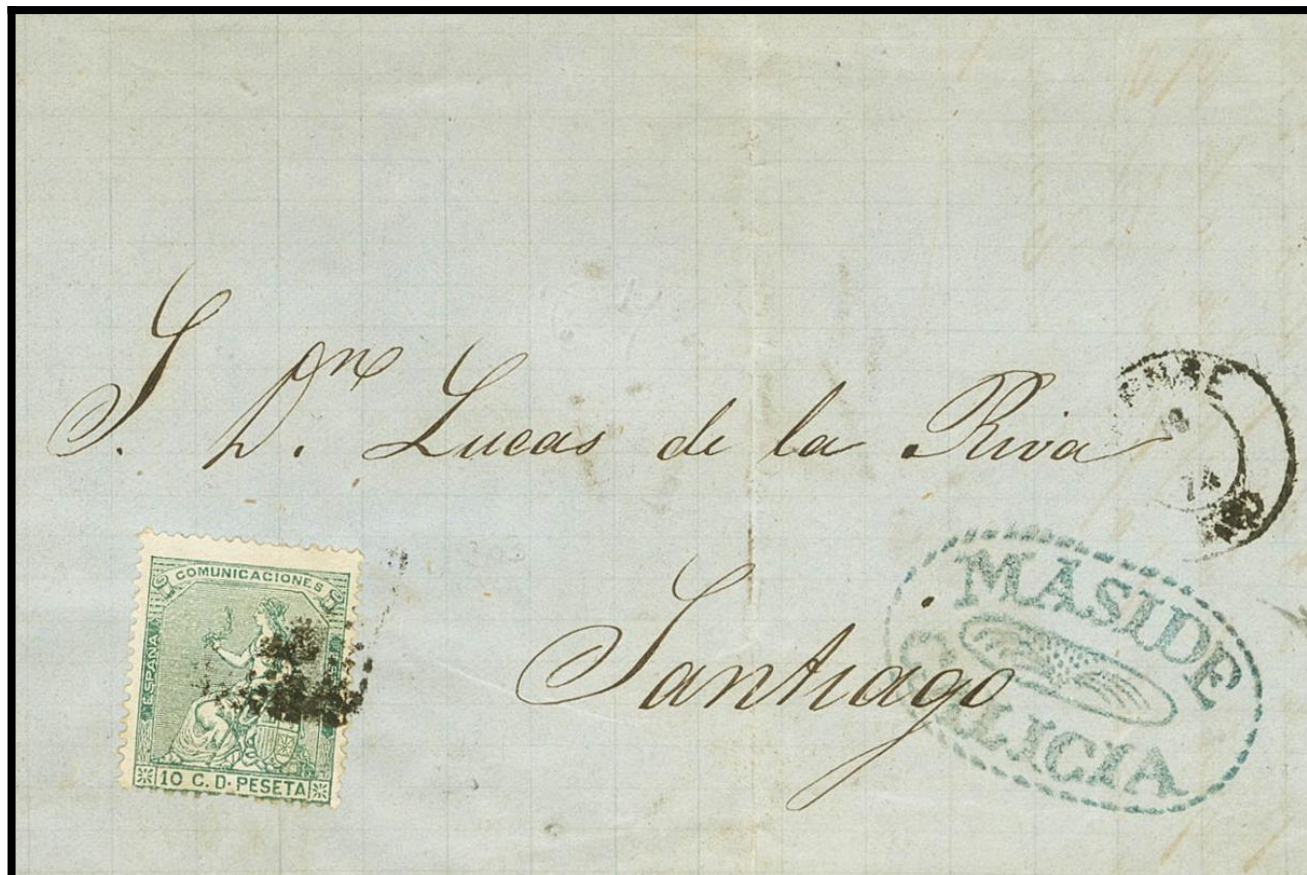 S. Dn. Lucas de la Riva
Santiago
COMUNICACIONES
ESPAÑA
10 C. D. PESETA
74
MASIDE
GALICIA